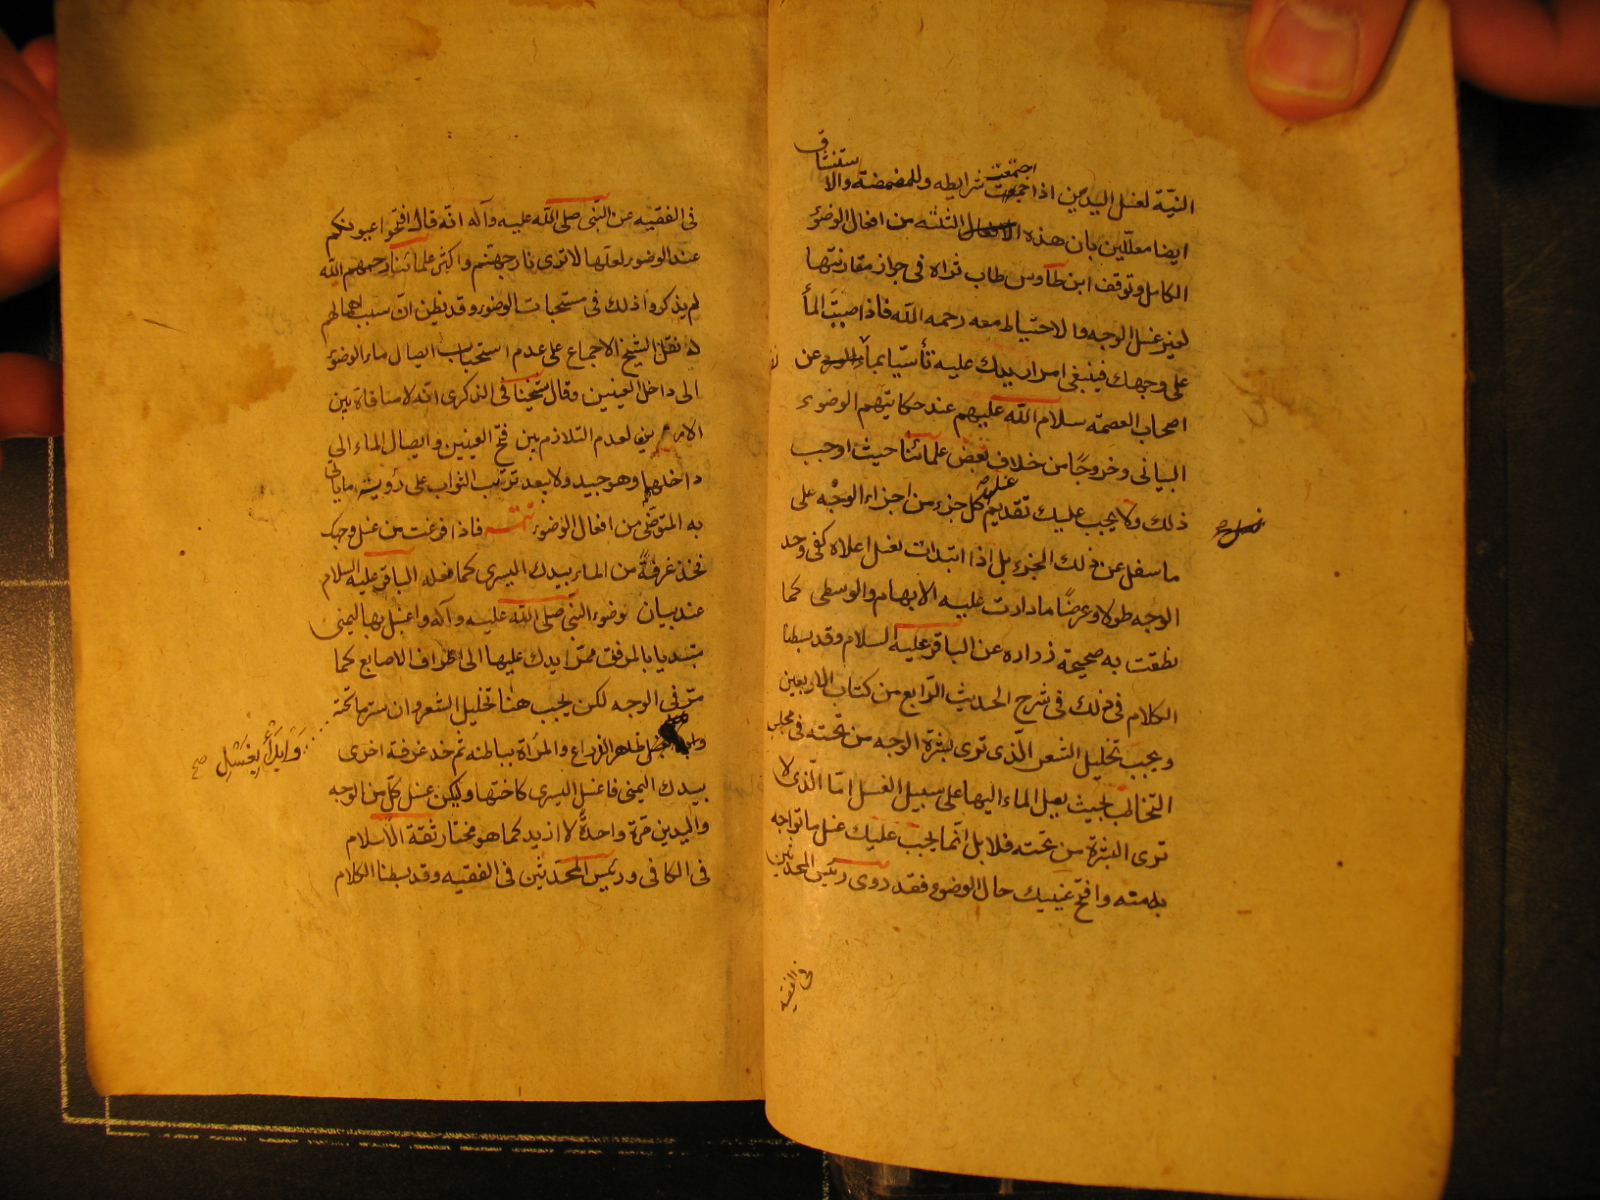 النيّة لغسل اليدين اذا اجتمعت شرايطه وللمضمضة والاستنشاق
ايضا معلّلين بان هذه الثلثه من افعال الوضوء
الكامل وتوقف ابن طاوس طاب ثراه فى جواز مقارنتها
لغير غسل الوجه والاحتياط معه رحمه الله فاذا صببت المأ
على وجهك فينبغى امرار يدك عليه تأسّيا بمأ عن
اصحاب العصمة سلام الله عليهم عند حكايتهم الوضوء
البيانى وخروجًا من خلاف بعض علمائنا حيث اوجب
ذلك ولا يجب عليك تقديم غسل كل جزء من اجزاء الوجه على
ما سفل عن ذلك الجزء بل اذا ابتدات بغسل اعلاه كفى وحد
الوجه طولا وعرضًا ما دارت عليه الابهام والوسطى كما
نطقت به صحيحة زراره عن الباقر عليه السلام وقد بسطنا
الكلام فى ذلك فى شرح الحديث الرّابع من كتاب الاربعين
ويجب تخليل الشعر الّذى ترى بشرة الوجه من تحته فى مجلس
التخاطب بحيث يصل الماء اليها على سبيل الغسل امّا الّذى لا
ترى البشرة من تحته فلا بل انّما يجب عليك غسل ما تواجه
به منه وافتح عينيك حال الوضوء فقد روى رئيس المحدّثين
فى الفقيه
فى الفقيه عن النّبى صلى الله عليه وآله انّه قال افتحوا عيونكم
عند الوضوء لعلّها لا ترى نار جهنّم واكثر علمائنا رحمهم الله
لم يذكروا ذلك فى مستحبات الوضوء وقد يظن انّ سبب اهمالهم
له نقل الشيخ الاجماع على عدم استحباب ايصال ماء الوضوء
الى داخل العينين وقال شيخنا فى الذكرى انّه لا منافاة بين
الامرين لعدم التلازم بين فتح العينين وايصال الماء الى
داخلها وهو جيد ولا بعد ترتّب الثواب على رؤيته ما ياتى
به المتوضّى من افعال الوضوء تتمّه فاذا فرغت من غسل وجهك
فخذ غرفةً من الماء بيدك اليسرى كما فعله الباقر عليه السلام
عند بيان وضوء النّبى صلى الله عليه وآله واغسل بها اليمنى
مبتديا بالمرفق ممرّا يدك عليها الى اطراف الاصابع كما
مرّ فى الوجه لكن يجب هنا تخليل الشعر وان ستر ما تحته
وابدأ بغسل
صح
ظاهر الذراع والمرأة بباطنه ثم خذ غرفة اخرى
بيدك اليمنى فاغسل اليسرى كاختها وليكن غسل كلّ من الوجه
واليدين مرّة واحدةً لا ازيد كما هو مختار ثقة الاسلام
فى الكافى ورئيس المحدّثين فى الفقيه وقد بسطنا الكلام